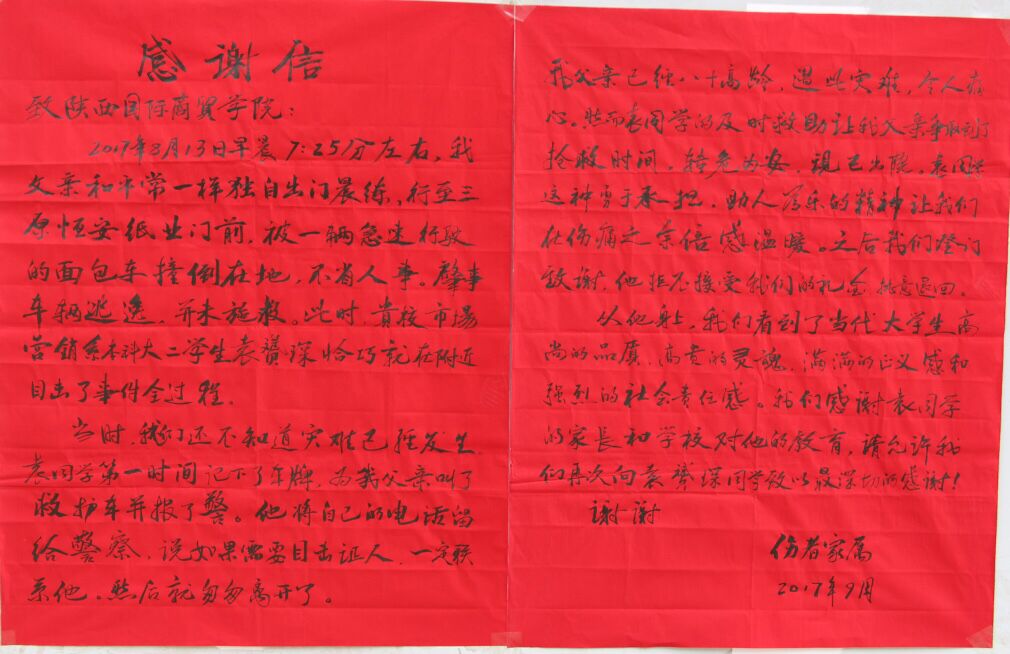 感谢信
致陕西国际商贸学院：
2017年8月13日早晨7:25分左右，我
父亲和平常一样独自出门晨练，行至三
原恒安纸业门前，被一辆急速行驶
的面包车撞倒在地，不省人事。肇事
车辆逃逸，并未施救。此时，贵校市场
营销系本科大二学生袁赟琛恰巧就在附近
目击了事件全过程。
当时，我们还不知道灾难已经发生，
袁同学第一时间记下了车牌，为我父亲叫了
救护车并报了警。他将自己的电话留
给警察，说如果需要目击证人，一定联
系他。然后就匆匆离开了。
我父亲已经八十高龄，遭此灾难，令人
心。然而袁同学的及时救助让我父亲争取到了
抢救时间，转危为安，现已出院。袁同学
这种勇于承担，助人为乐的精神让我们
在伤痛之余倍感温暖。之后我们登门
致谢，他拒不接受我们的礼金，执意退回。
从他身上，我们看到了当代大学生高
尚的品质，高贵的灵魂，满满的正义感和
强烈的社会责任感。我们感谢袁同学
的家长和学校对他的教育，请允许我
们再次向袁赟琛同学致以最深切的感谢！
谢谢
伤者家属
2017年9月